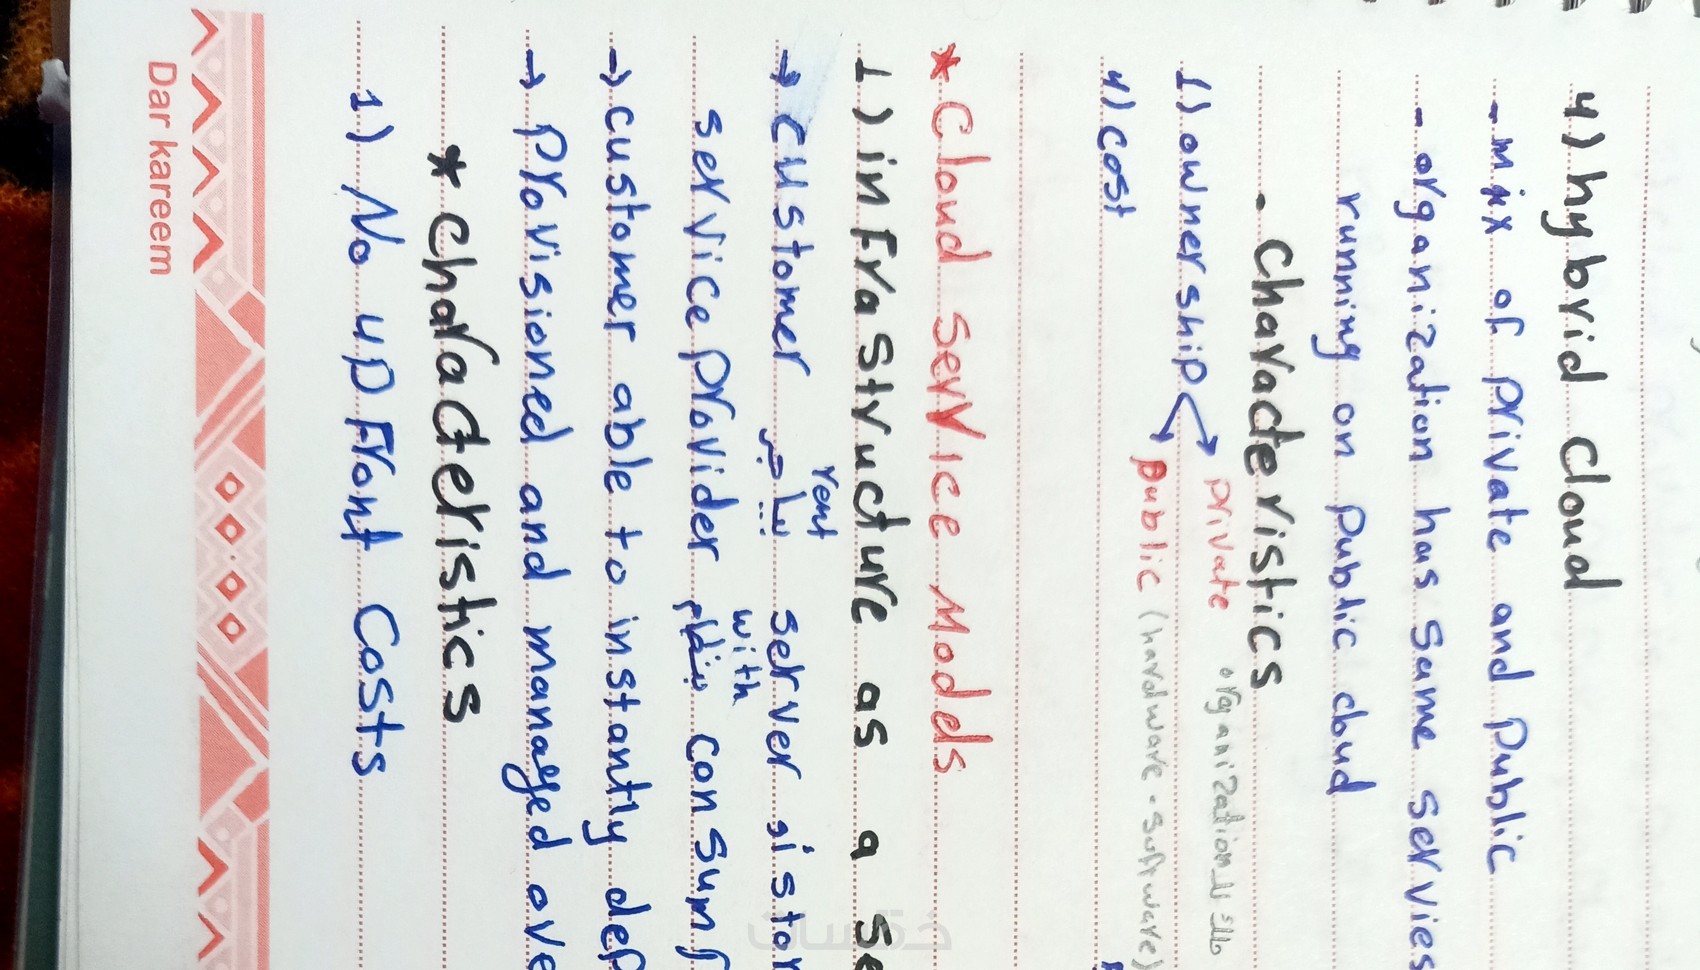 4) hybrid cloud
- mix of private and public
- organization has some servies
running on public cloud
- characteristics
1) ownership private organization
public (hardware - software)
4) cost
* Cloud service models
1) infrastructure as a se
rent
→ customer يستأجر server
with
service provider بنظام consum
→ customer able to instantly dep
→ provisioned and managed ove
* characteristics
1) No upfront costs
Dar kareem
خمسات